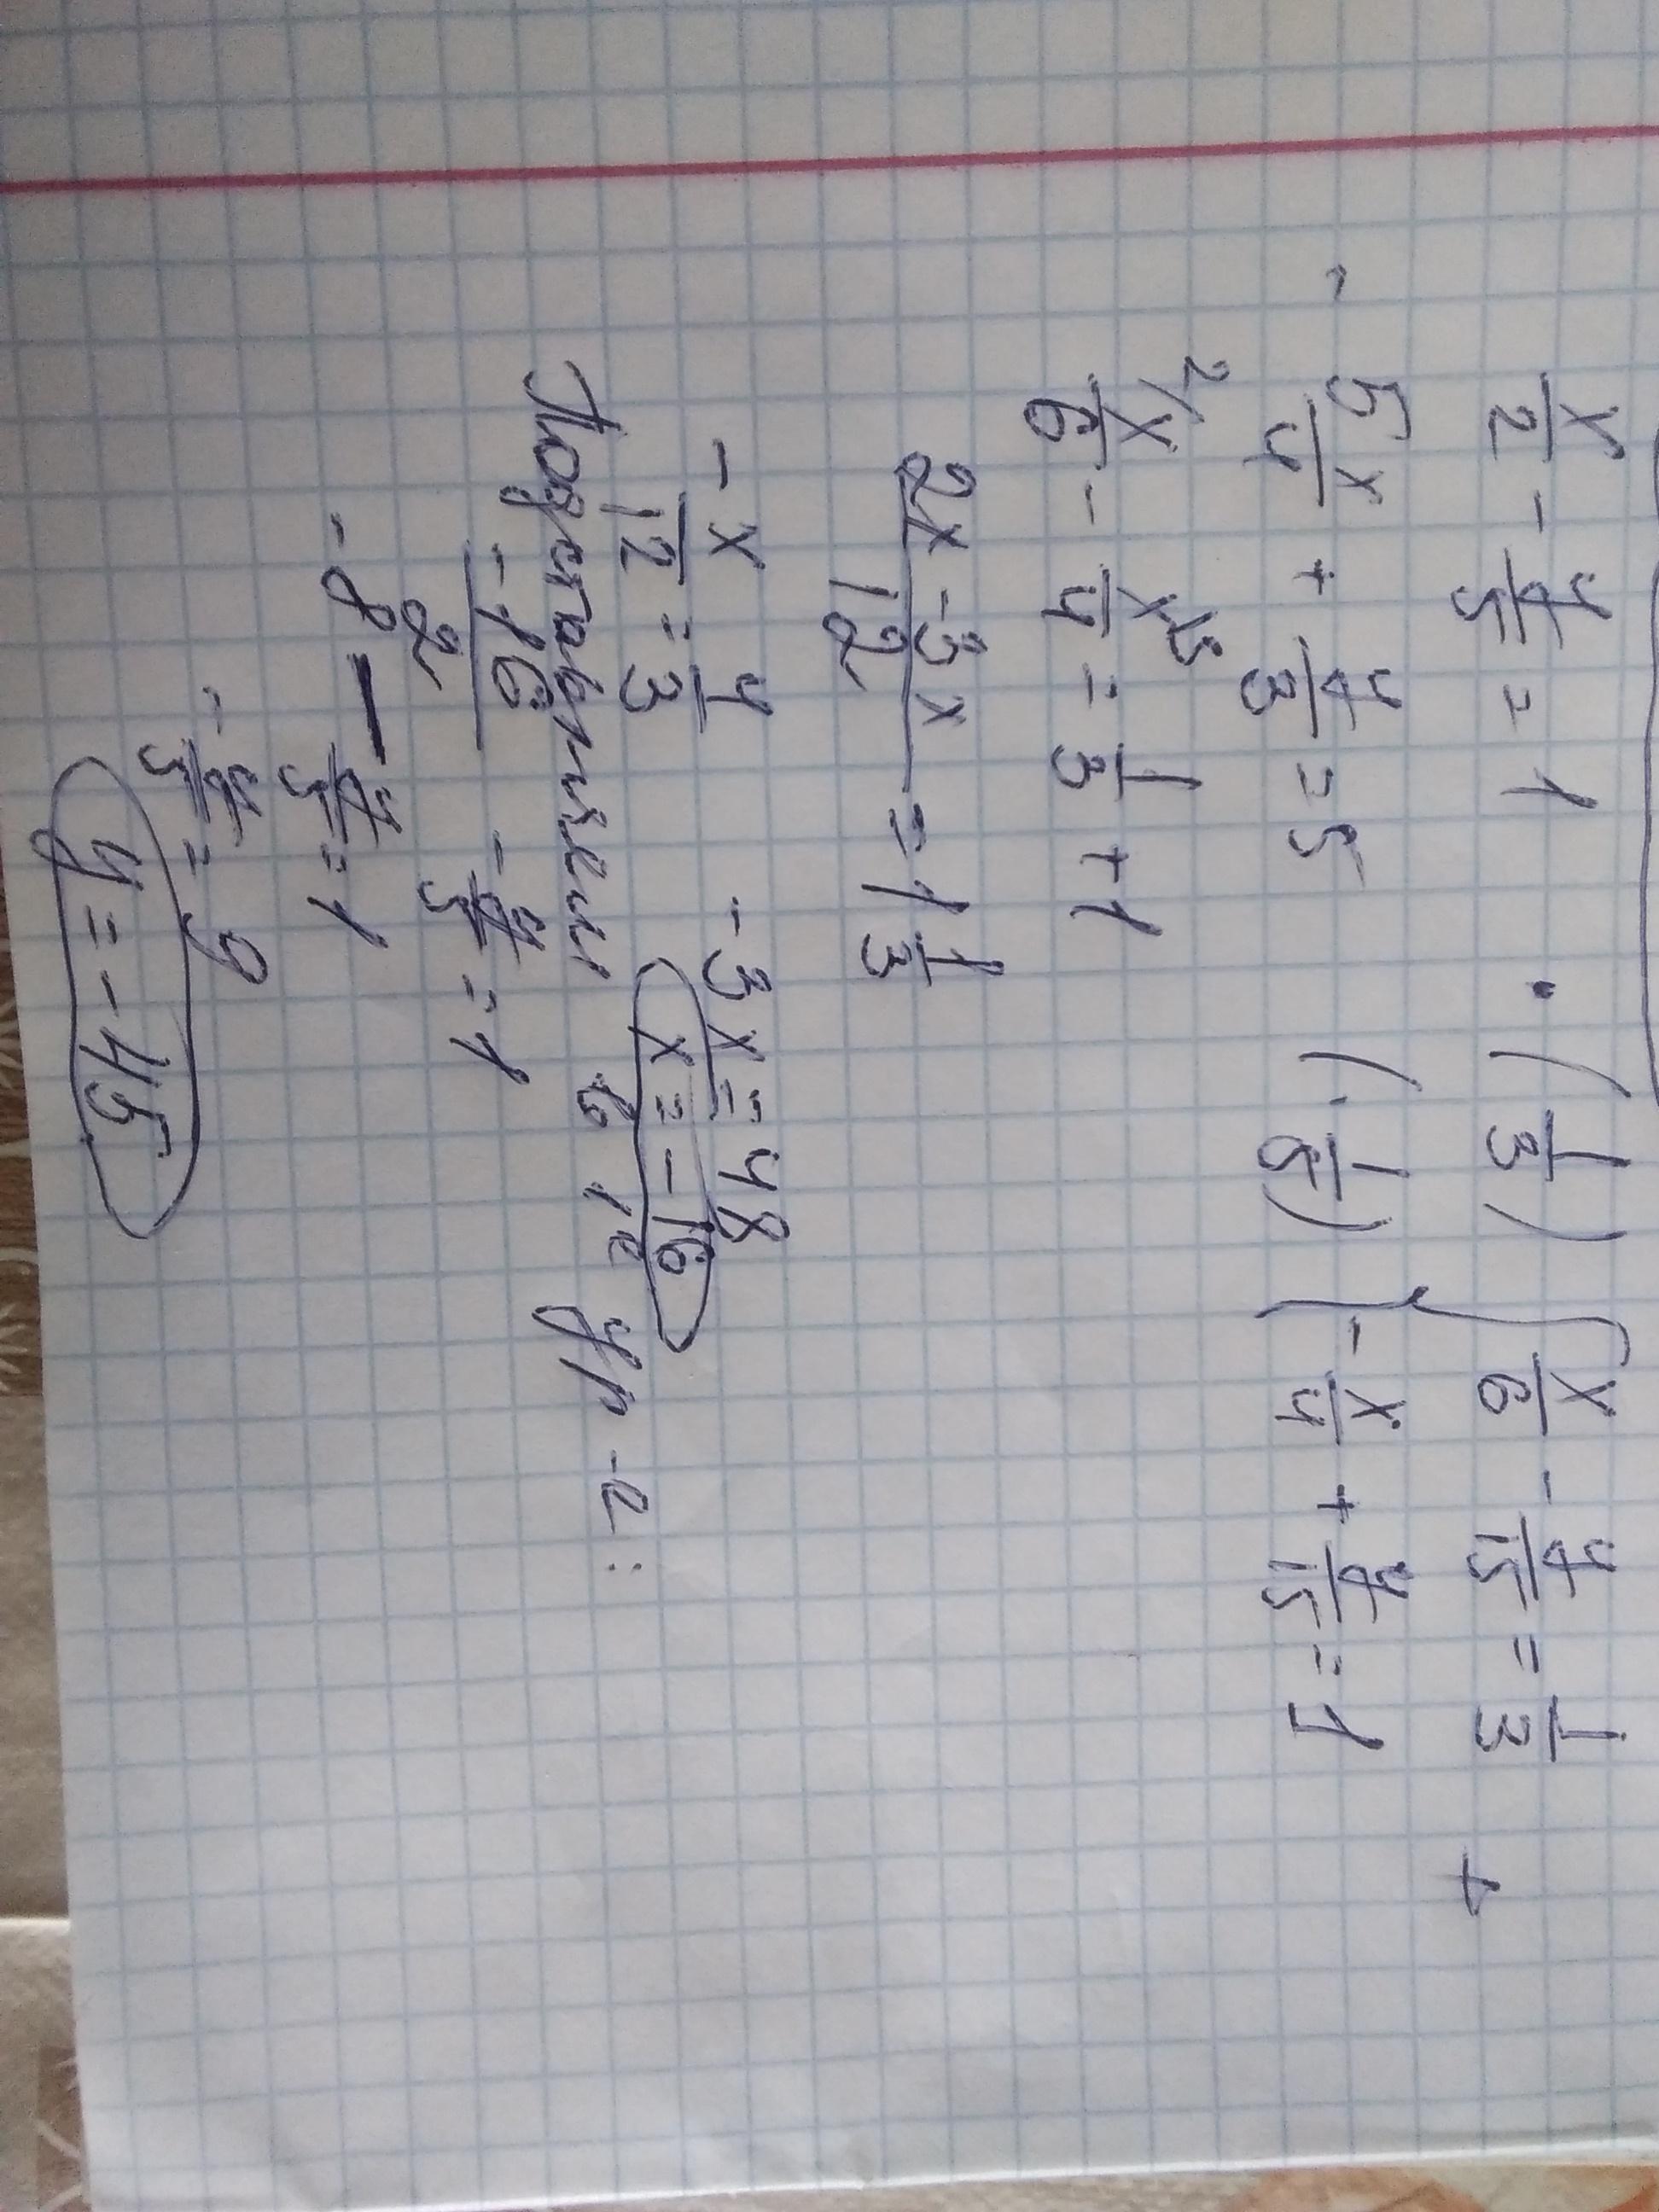 x/2 - y/5 = 1 · (1/3) { x/6 - y/15 = 1/3
- 5x/4 + y/3 = 5 (· 1/5) { - x/4 + y/15 = 1 +
2/ x/6 - x/4 \3 = 1/3 + 1
2x - 3x / 12 = 1 1/3
- x/12 = 4/3 - 3x = 48
x = - 16
Подставляем в 1е ур-е:
-16/2 - y/5 = 1
- 8 - y/5 = 1
- y/5 = 9
y = - 45